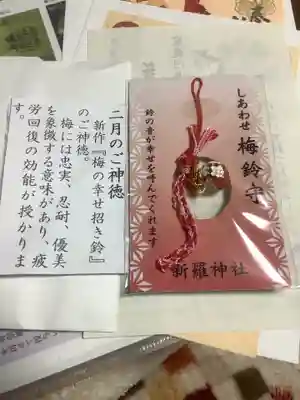 二月のご神徳
新作『梅の幸せ招き鈴』
のご神徳。
梅には忠実、忍耐、優美
を象徴する意味があり、疲
労回復の効能が授かりま
す。
しあわせ 梅鈴守
鈴の音が幸せを呼んでくれます
新羅神社